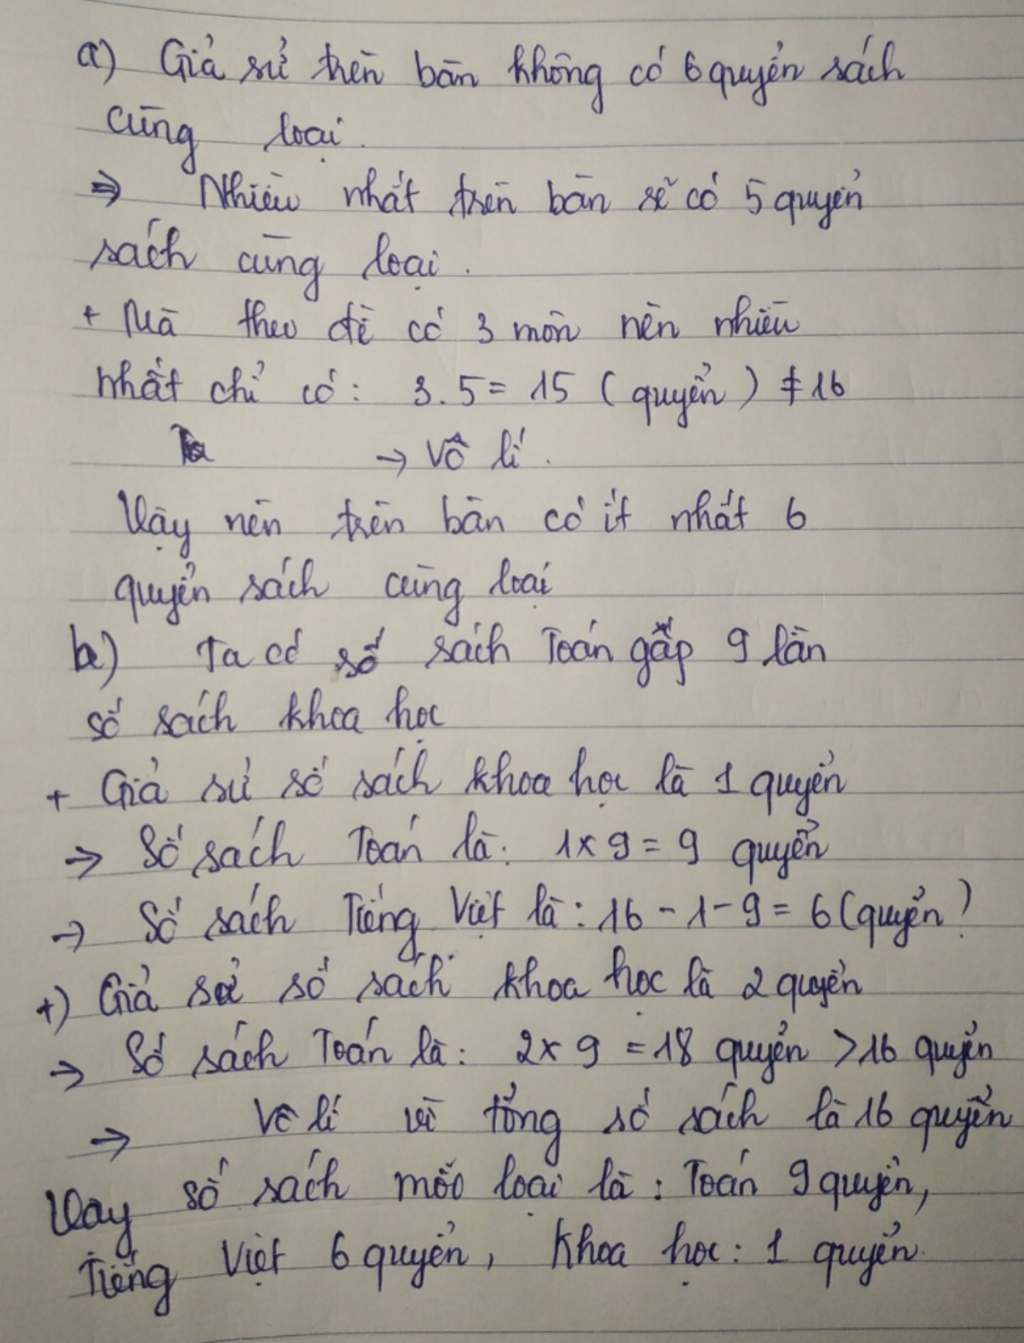 a) Giả sử trên bàn không có 6 quyển sách
cùng loại.
=> Nhiều nhất trên bàn sẽ có 5 quyển
sách cùng loại.
+ Mà theo đề có 3 môn nên nhiều
nhất chỉ có: 3.5 = 15 (quyển) ≠ 16
→ Vô lí.
Vậy nên trên bàn có ít nhất 6
quyển sách cùng loại
b) Ta có số sách Toán gấp 9 lần
số sách khoa học
+ Giả sử số sách khoa học là 1 quyển
→ Số sách Toán là: 1 x 9 = 9 quyển
→ Số sách Tiếng Việt là: 16 - 1 - 9 = 6 (quyển)
+) Giả sử số sách khoa học là 2 quyển
→ Số sách Toán là: 2 x 9 = 18 quyển > 16 quyển
→ Vô lí vì tổng số sách là 16 quyển
Vậy số sách mỗi loại là: Toán 9 quyển,
Tiếng Việt 6 quyển, Khoa học: 1 quyển.